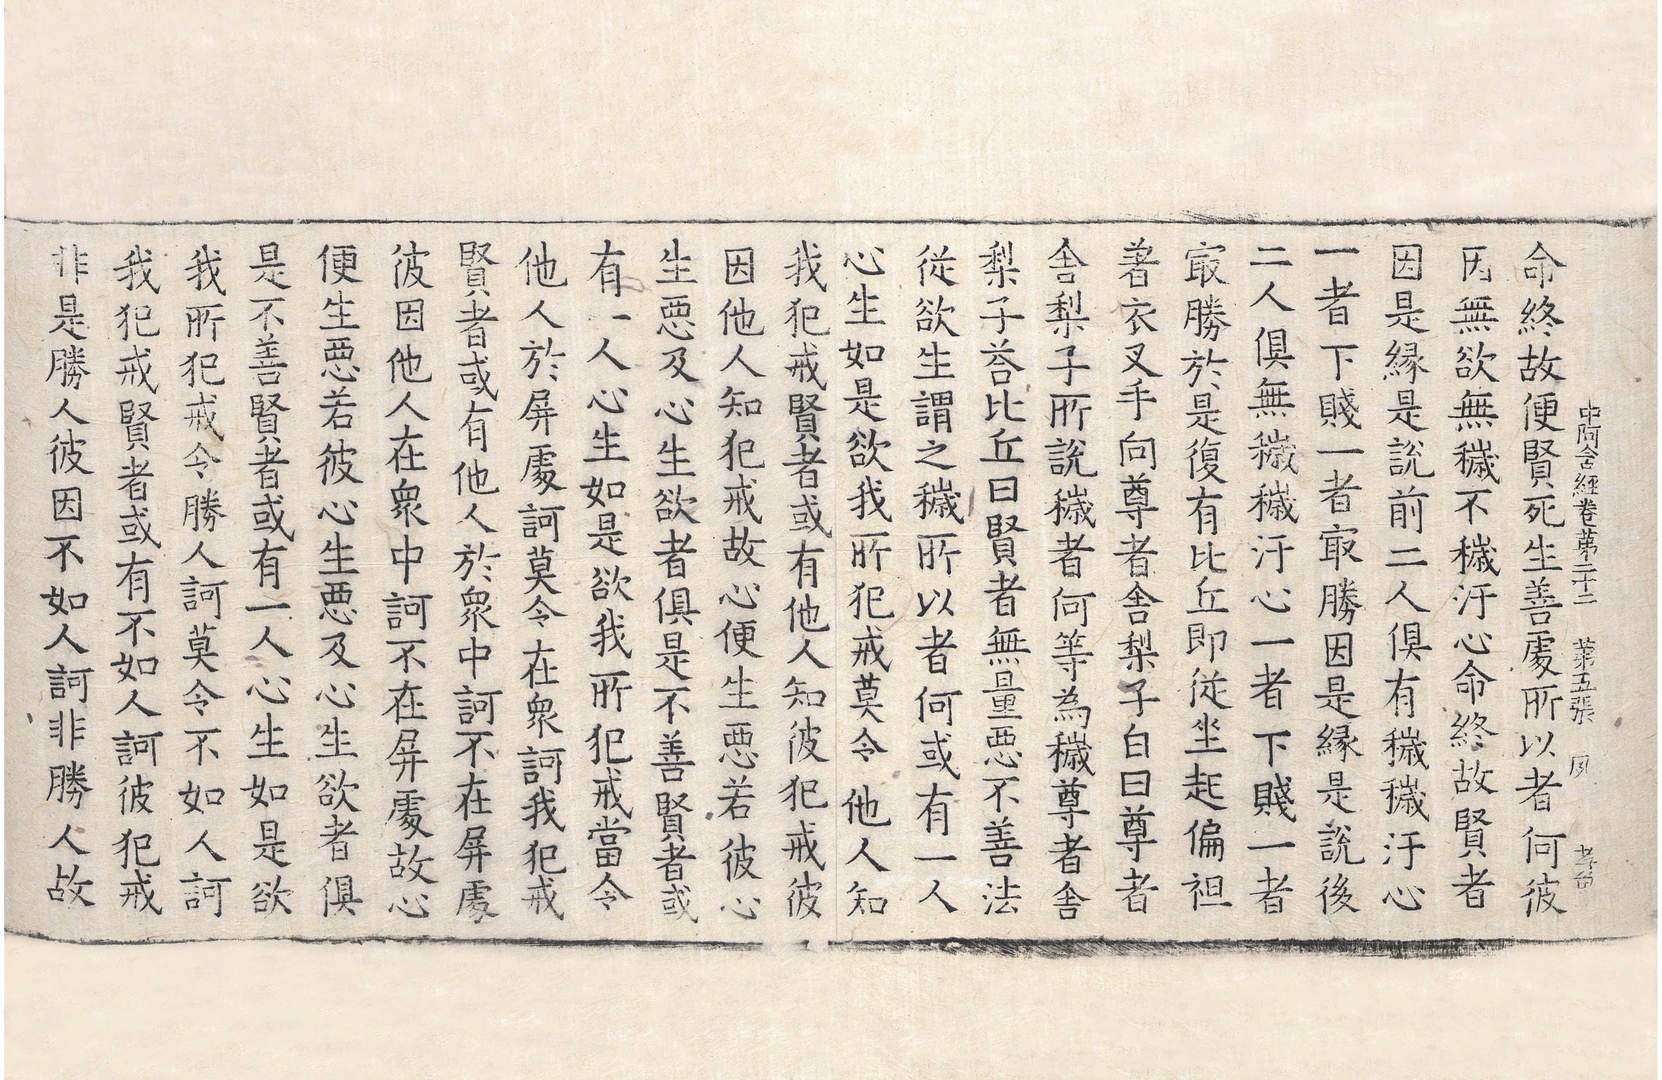 中阿含經卷第二十二　第五張　夙
命終故便賢死生善處所以者何彼
因無欲無穢不穢汙心命終故賢者
因是緣是說前二人俱有穢穢汙心
一者下賤一者㝡勝因是緣是說後
二人俱無穢穢汙心一者下賤一者
㝡勝於是復有比丘即從坐起偏袒
著衣叉手向尊者舍梨子白曰尊者
舍梨子所說穢者何等為穢尊者舍
梨子荅比丘曰賢者無量惡不善法
從欲生謂之穢所以者何或有一人
心生如是欲我所犯戒莫令他人知
我犯戒賢者或有他人知彼犯戒彼
因他人知犯戒故心便生惡若彼心
生惡及心生欲者俱是不善賢者或
有一人心生如是欲我所犯戒當令
他人於屏處訶莫令在衆訶我犯戒
賢者或有他人於衆中訶不在屏處
彼因他人在衆中訶不在屏處故心
便生惡若彼心生惡及心生欲者俱
是不善賢者或有一人心生如是欲
我所犯戒令勝人訶莫令不如人訶
我犯戒賢者或有不如人訶彼犯戒
非是勝人彼因不如人訶非勝人故